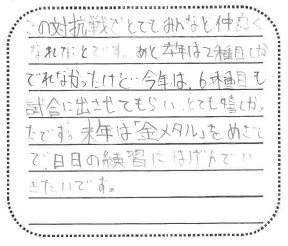 この対抗戦でとてもみんなと仲良く
なれたことです。あと去年は2種目しか
でれなかったけど…今年は、6種目も
試合に出させてもらい、とても嬉しかっ
たです。来年は「金メタル」をめざし
て、日日の練習にはげんでい
きたいです。